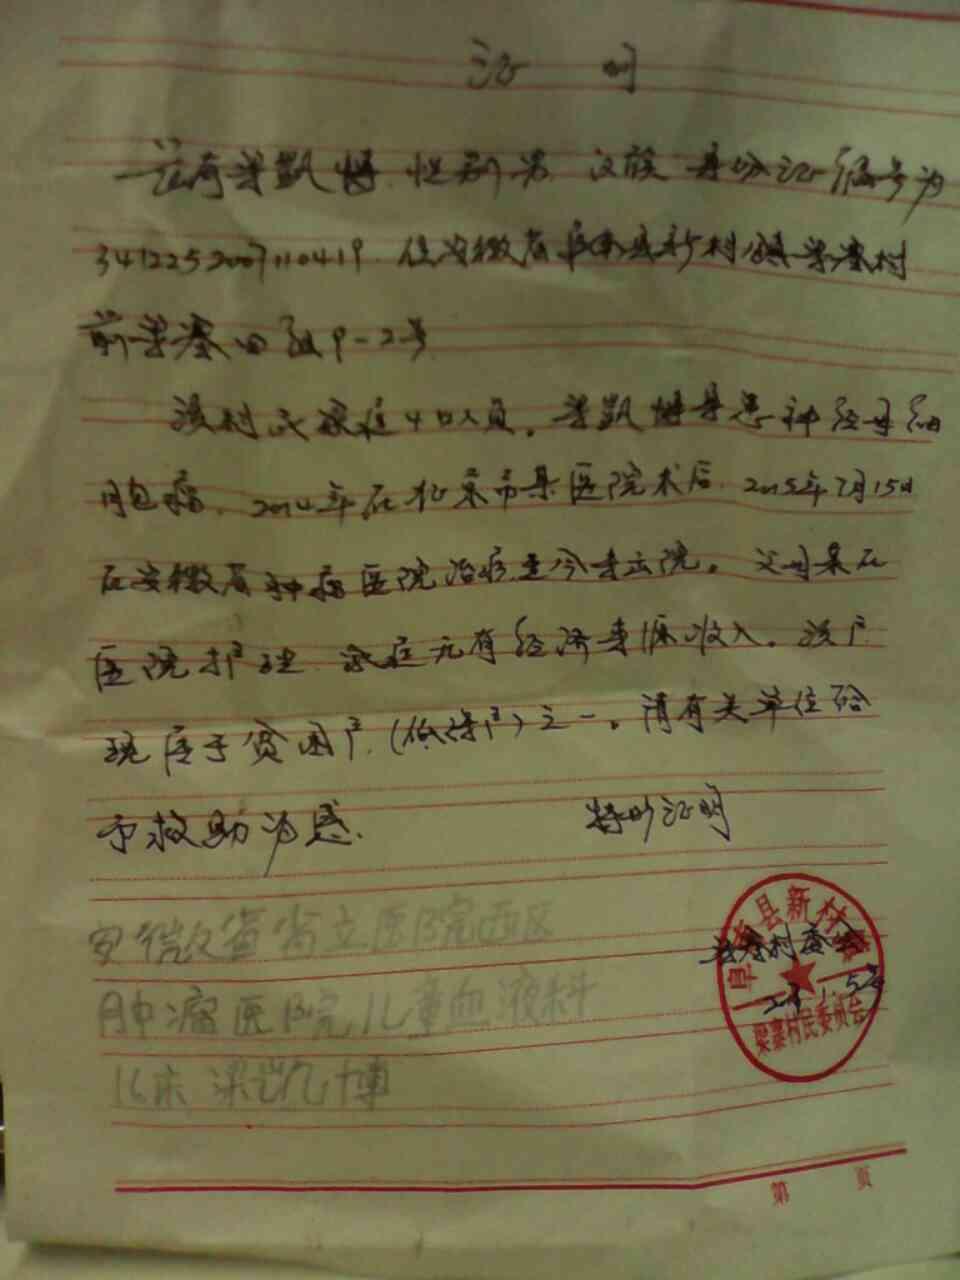 证 明
兹有梁凯博 性别男 汉族 身份证编号为
住安徽省阜南县新村镇梁寨村
前梁寨四组9-2号
该村民家庭4口人员。梁凯博身患神经母细
胞瘤。2014年在北京市某医院术后 2015年7月15日
在安徽省肿瘤医院治疗至今未出院。父母亲在
医院护理 家庭无有经济来源收入。该户
现属于贫困户(低保户)之一。请有关单位给
予救助为感. 特此证明
梁寨村委会
阜南县新村镇
梁寨村民委员会
安徽省省立医院西区
肿瘤医院儿童血液科
16床 梁凯博
第 页